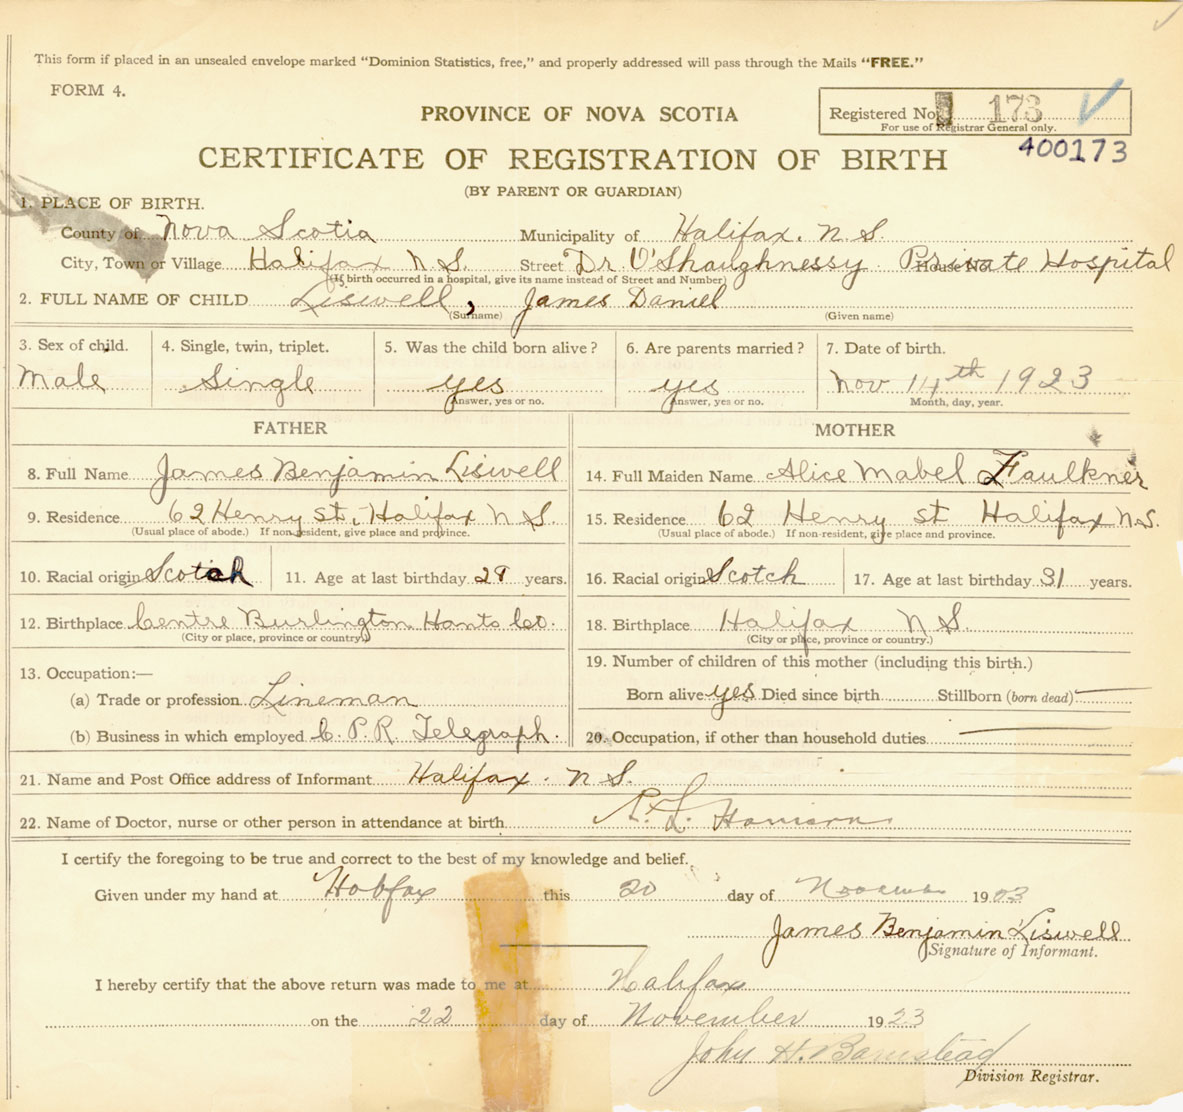 This form if placed in an unsealed envelope marked "Dominion Statistics, free," and properly addressed will pass through the Mails "FREE."
FORM 4.
PROVINCE OF NOVA SCOTIA
Registered No. 173
For use of Registrar General only.
400173
CERTIFICATE OF REGISTRATION OF BIRTH
(BY PARENT OR GUARDIAN)
1. PLACE OF BIRTH.
County of Nova Scotia Municipality of Halifax. N.S.
City, Town or Village Halifax N.S. Street Dr. O'Shaughnessy House No. Private Hospital
(If birth occurred in a hospital, give its name instead of Street and Number)
2. FULL NAME OF CHILD Liswell, James Daniel
(Surname) (Given name)
3. Sex of child. 4. Single, twin, triplet. 5. Was the child born alive? 6. Are parents married? 7. Date of birth.
Male Single yes yes Nov 14th 1923
Answer, yes or no. Answer, yes or no. Month, day, year.
FATHER MOTHER
8. Full Name James Benjamin Liswell 14. Full Maiden Name Alice Mabel Faulkner
9. Residence 62 Henry St, Halifax N S. 15. Residence 62 Henry St Halifax N.S.
(Usual place of abode.) If non-resident, give place and province. (Usual place of abode.) If non-resident, give place and province.
10. Racial origin Scotch 11. Age at last birthday 29 years. 16. Racial origin Scotch 17. Age at last birthday 31 years.
12. Birthplace Centre Burlington Hants Co. 18. Birthplace Halifax N S.
(City or place, province or country.) (City or place, province or country.)
13. Occupation:— 19. Number of children of this mother (including this birth.)
(a) Trade or profession Lineman Born alive yes Died since birth Stillborn (born dead)
(b) Business in which employed C. P. R. Telegraph. 20. Occupation, if other than household duties
21. Name and Post Office address of Informant Halifax. N S.
22. Name of Doctor, nurse or other person in attendance at birth
I certify the foregoing to be true and correct to the best of my knowledge and belief.
Given under my hand at Halifax this 20 day of November 1923
James Benjamin Liswell
Signature of Informant.
I hereby certify that the above return was made to me at Halifax
on the 22 day of November 1923
John H. Barnstead
Division Registrar.